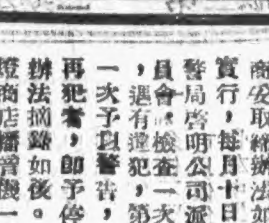 商發取締辦法
實行，每月十日
警局啓明公司派
員會，檢查一次
，遇有違犯，第
一次予以警告，
再犯者，卽予停
辦法摘錄如後。
商店播音機一